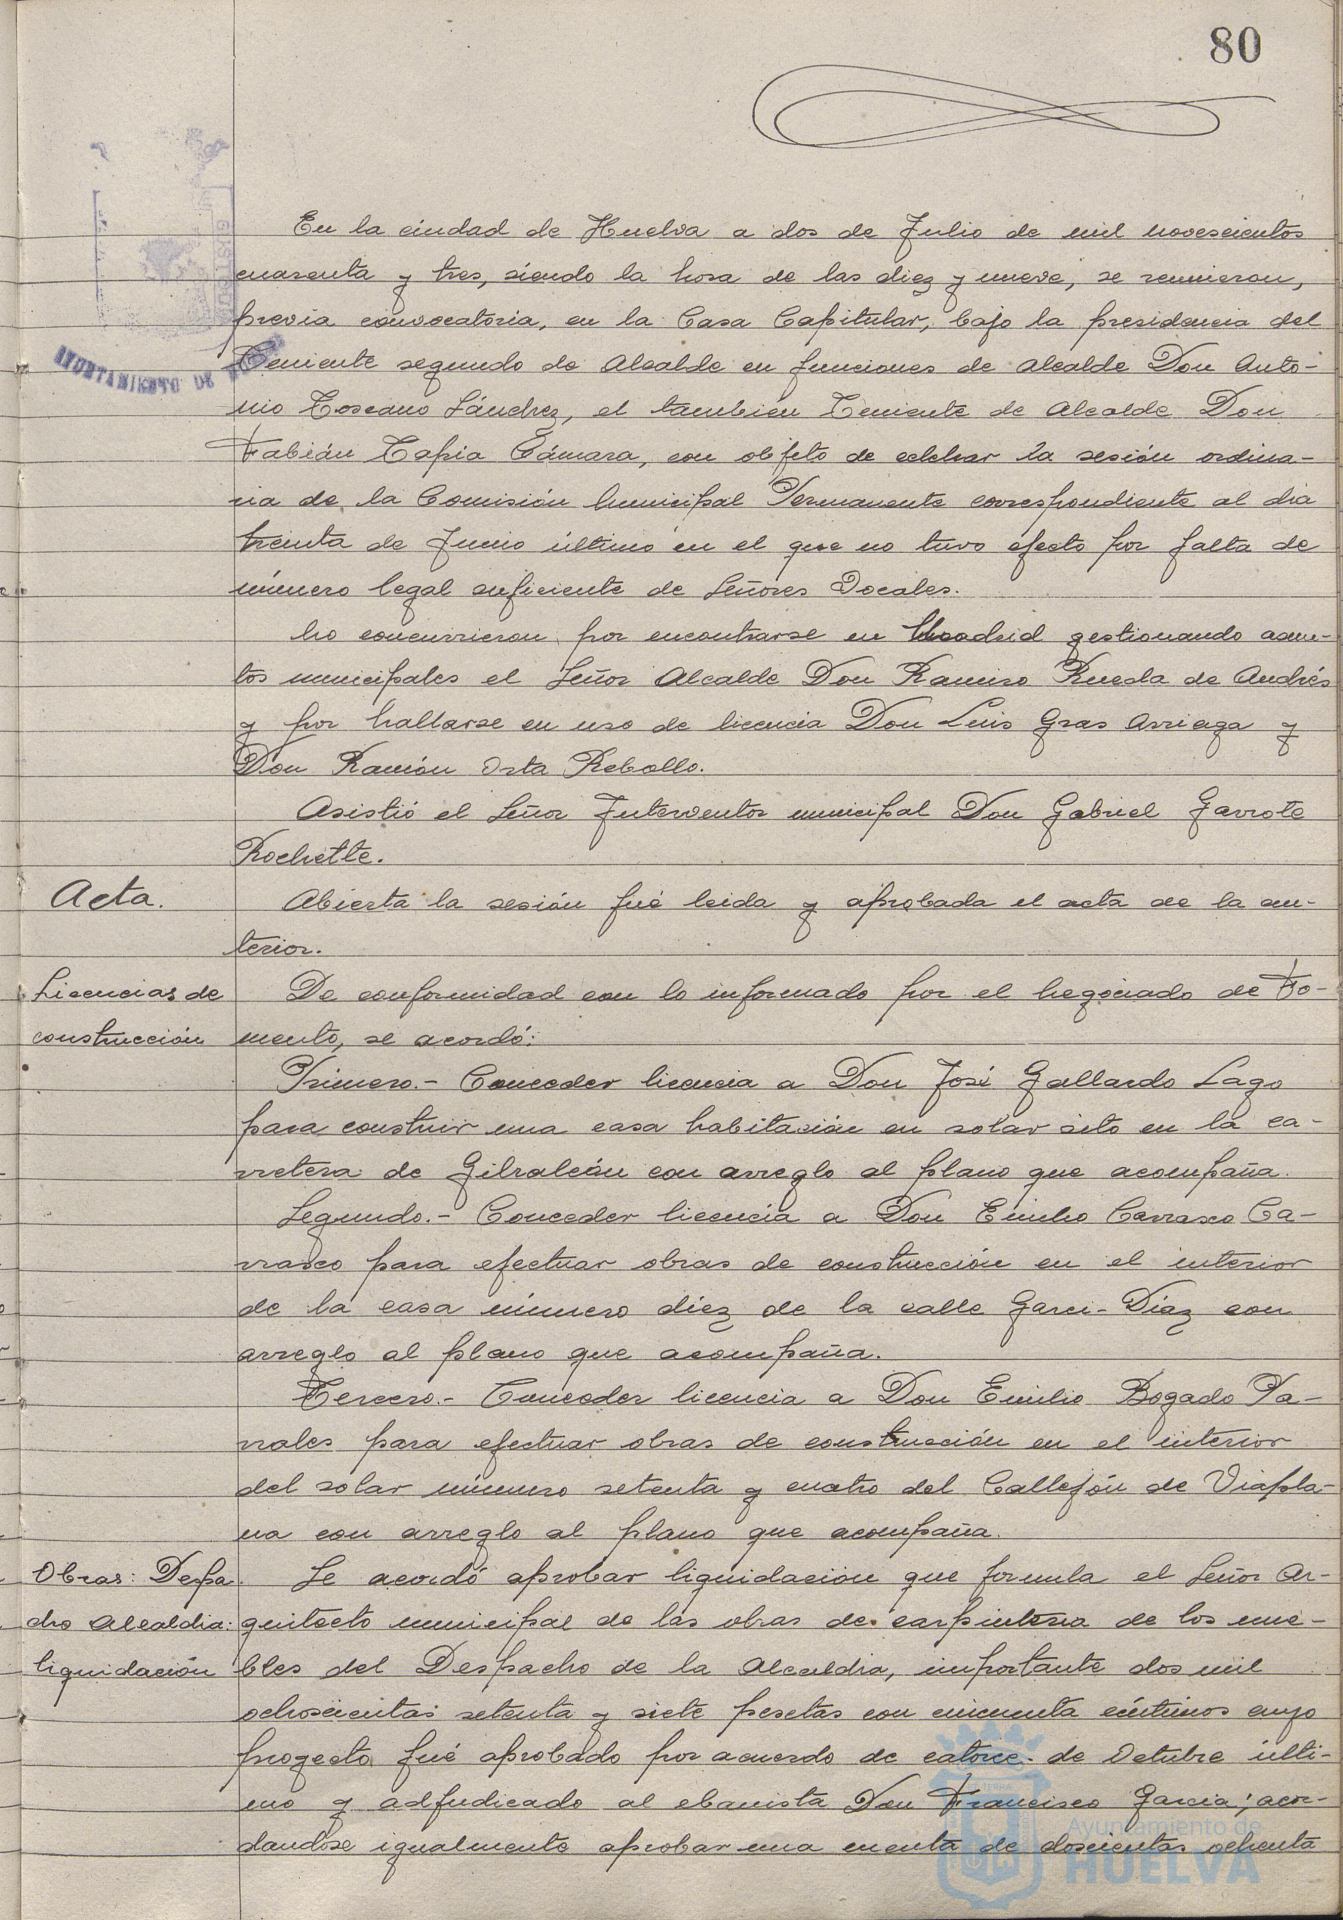 80
En la ciudad de Huelva a dos de Julio de mil novescientos
cuarenta y tres, siendo la hora de las diez y nueve, se reunieron,
previa convocatoria, en la Casa Capitular, bajo la presidencia del
Teniente segundo de Alcalde en funciones de Alcalde Don Anto-
nio Toscano Sánchez, el también Teniente de Alcalde Don
Fabián Tapia Cámara, con objeto de celebrar la sesión ordina-
ria de la Comisión Municipal Permanente correspondiente al dia
treinta de Junio último en el que no tuvo efecto por falta de
número legal suficiente de Señores Vocales.
No concurrieron por encontrarse en Madrid gestionando asun-
tos municipales el Señor Alcalde Don Ramiro Rueda de Andrés
y por hallarse en uso de licencia Don Luis Gras Arriaga y
Don Ramón Orta Rebollo.
Asistió el Señor Interventor municipal Don Gabriel Garrote
Rochette.
Acta.
Abierta la sesión fué leida y aprobada el acta de la an-
terior.
Licencias de
construcción
De conformidad con lo informado por el Negociado de Fo-
mento, se acordó:
Primero.- Conceder licencia a Don José Gallardo Lago
para construir una casa habitación en solar sito en la ca-
rretera de Gibraleón con arreglo al plano que acompaña.
Segundo.- Conceder licencia a Don Emilio Carrasco Ca-
rrasco para efectuar obras de construcción en el interior
de la casa número diez de la calle Garci-Díaz con
arreglo al plano que acompaña.
Tercero.- Conceder licencia a Don Emilio Bogado Pa-
rrales para efectuar obras de construcción en el interior
del solar número setenta y cuatro del Callejón de Viapla-
na con arreglo al plano que acompaña.
Obras: Despa
cho Alcaldia:
liquidación
Se acordó aprobar liquidación que formula el Señor Ar-
quitecto municipal de las obras de carpinteria de los mue-
bles del Despacho de la Alcaldia, importante dos mil
ochoscientas setenta y siete pesetas con cincuenta céntimos cuyo
proyecto fué aprobado por acuerdo de catorce de Octubre últi-
mo y adjudicado al ebanista Don Francisco Garcia; acor-
dandose igualmente aprobar una cuenta de doscientas ochenta
AYUNTAMIENTO DE
Ayuntamiento de
HUELVA